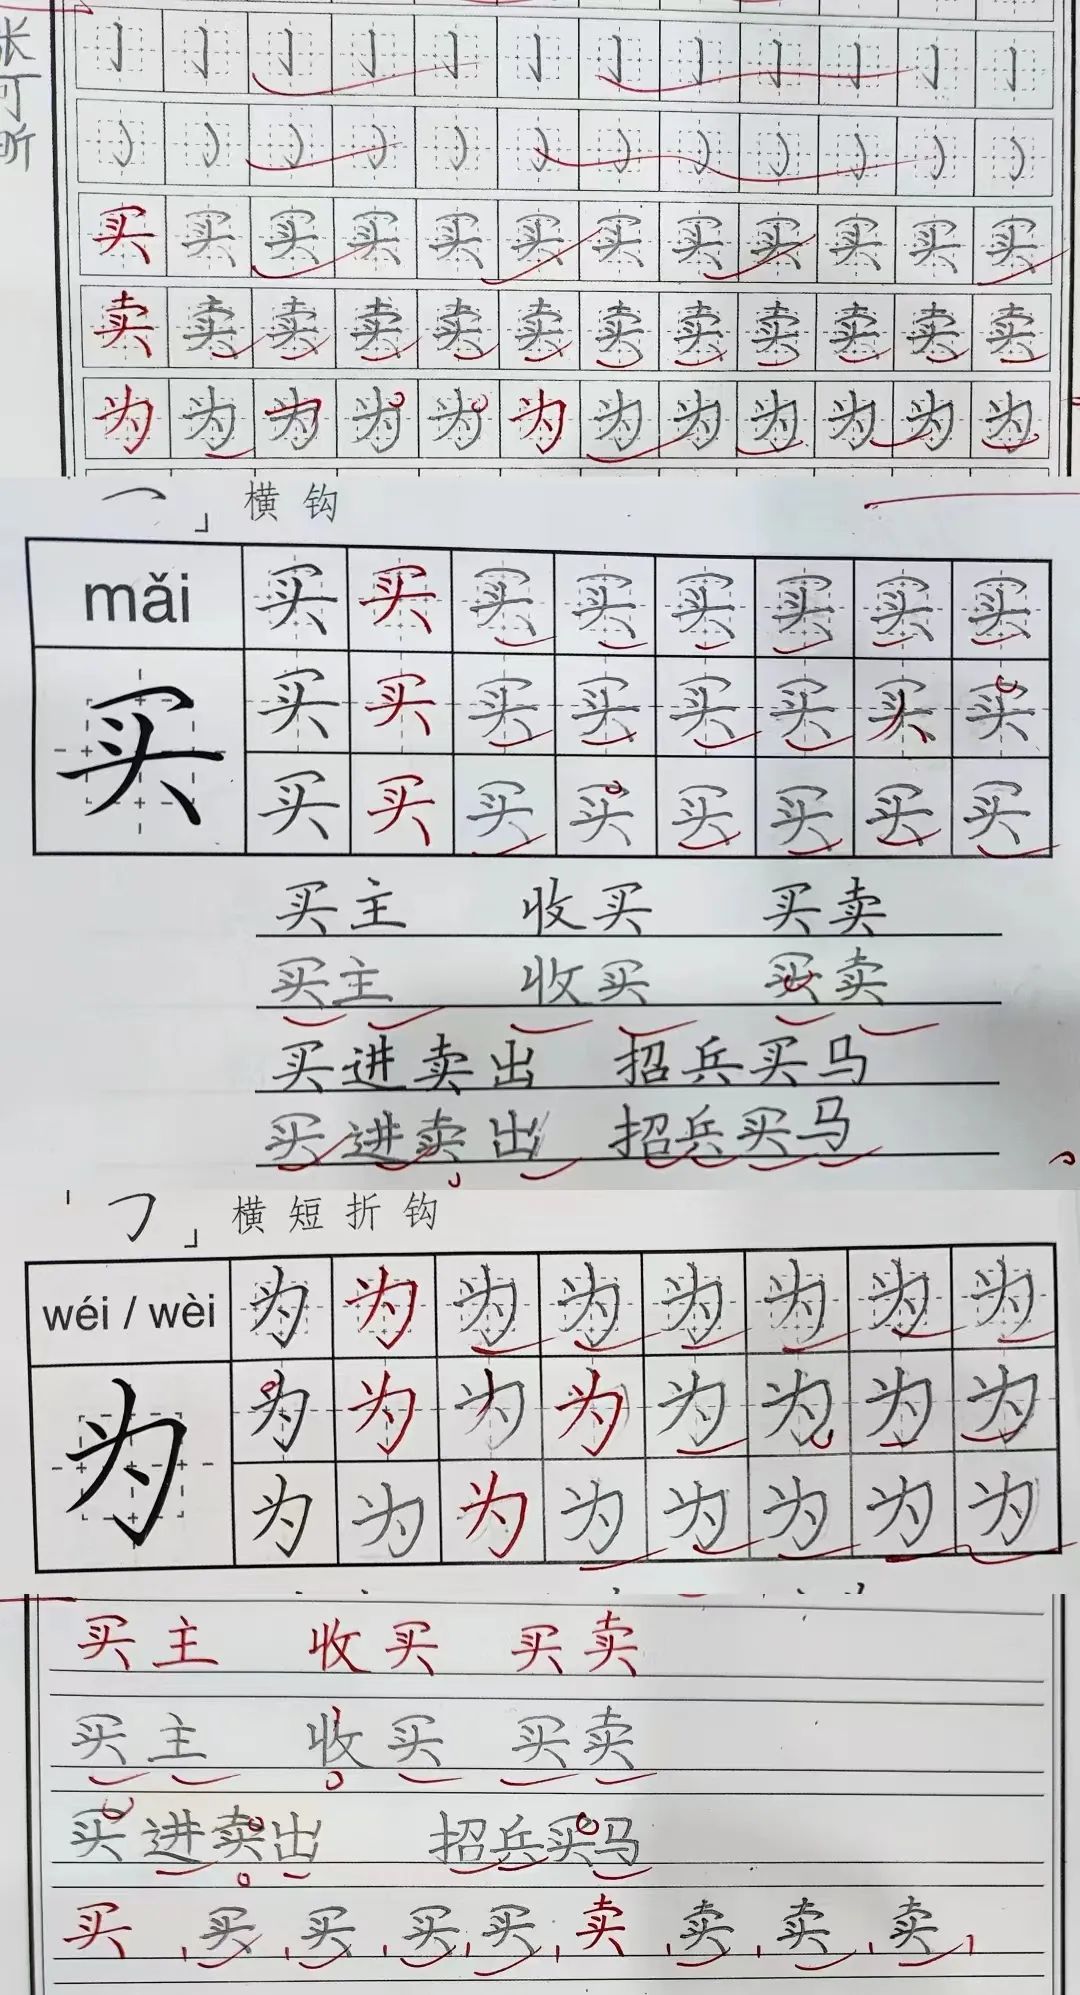 张可昕
亅亅亅亅亅亅亅亅亅亅亅亅
买买买买买买买买买买买买
卖卖卖卖卖卖卖卖卖卖卖卖
为为为为为为为为为为为为
「㇖」横钩
mǎi 买买买买买买买买
买 买买买买买买买买
买买买买买买买买
买主 收买 买卖
买主 收买 买卖
买进卖出 招兵买马
买进卖出 招兵买马
「㇆」横短折钩
wéi / wèi 为为为为为为为为
为 为为为为为为为为
为为为为为为为为
买主 收买 买卖
买主 收买 买卖
买进卖出 招兵买马
买买买买买卖卖卖卖